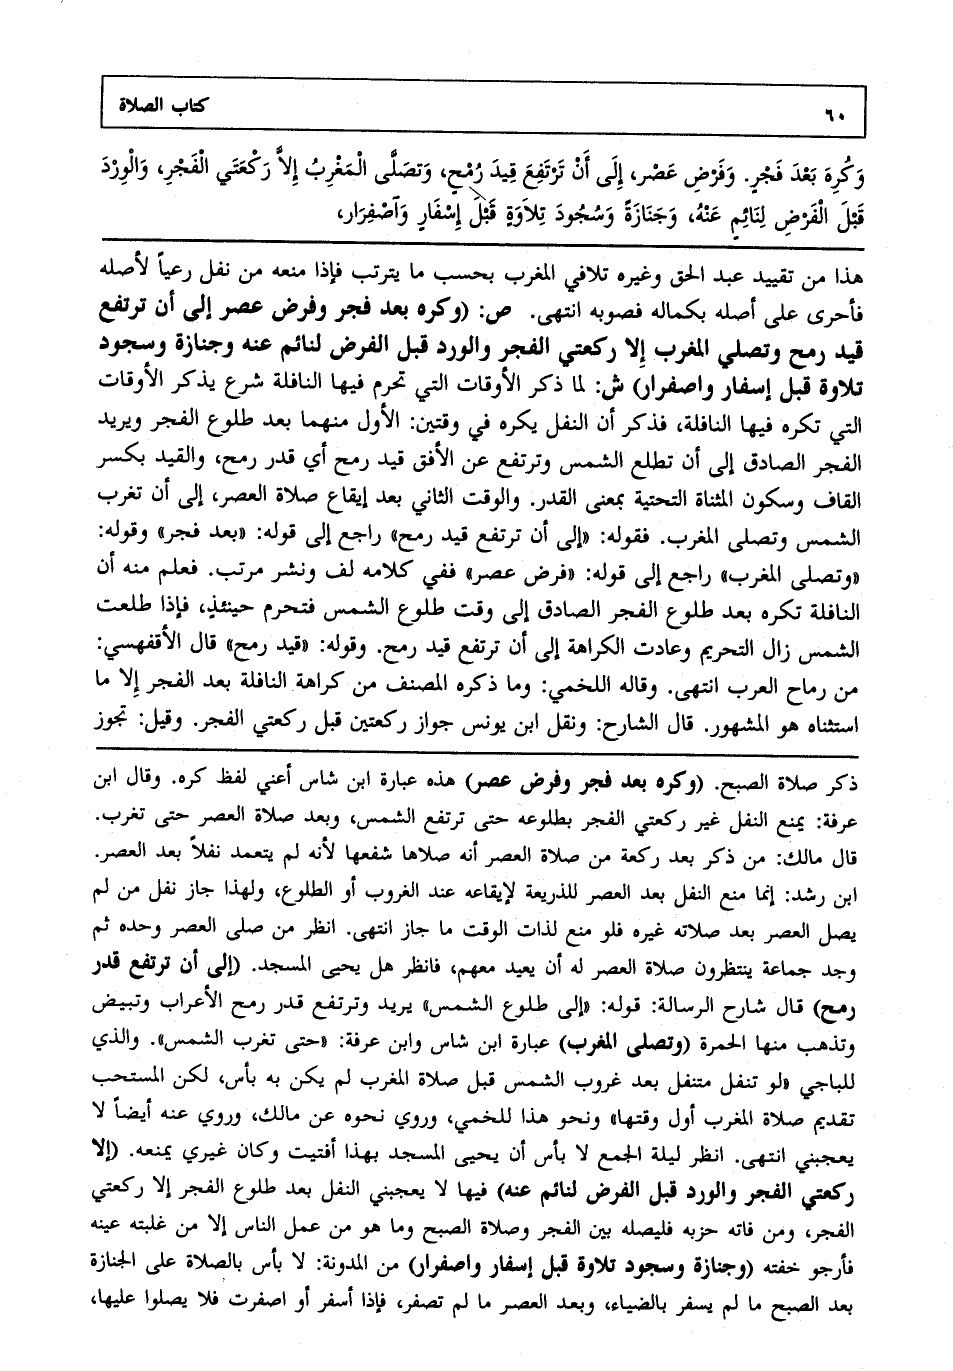 ٦٠ كتاب الصلاة
وَكُرِهَ بَعْدَ فَجْرٍ. وَفَرْضِ عَصْرٍ، إِلَى أَنْ تَرْتَفِعَ قِيدَ رُمْحٍ، وَتُصَلَّى الْمَغْرِبُ إِلاَّ رَكْعَتَيِ الْفَجْرِ، وَالْوِرْدَ
قَبْلَ الْفَرْضِ لِنَائِمٍ عَنْهُ، وَجَنَازَةً وَسُجُودَ تِلاَوَةٍ قَبْلَ إِسْفَارٍ وَآصْفِرَارٍ،
هذا من تقييد عبد الحق وغيره تلافي المغرب بحسب ما يترتب فإذا منعه من نفل رعياً لأصله
فأحرى على أصله بكماله فصوبه انتهى. ص: (وكره بعد فجر وفرض عصر إلى أن ترتفع
قيد رمح وتصلي المغرب إلا ركعتي الفجر والورد قبل الفرض لنائم عنه وجنازة وسجود
تلاوة قبل إسفار واصفرار) ش: لما ذكر الأوقات التي تحرم فيها النافلة شرع يذكر الأوقات
التي تكره فيها النافلة، فذكر أن النفل يكره في وقتين: الأول منهما بعد طلوع الفجر ويريد
الفجر الصادق إلى أن تطلع الشمس وترتفع عن الأفق قيد رمح أي قدر رمح، والقيد بكسر
القاف وسكون المثناة التحتية بمعنى القدر. والوقت الثاني بعد إيقاع صلاة العصر، إلى أن تغرب
الشمس وتصلى المغرب. فقوله: «إلى أن ترتفع قيد رمح» راجع إلى قوله: «بعد فجر» وقوله:
«وتصلى المغرب» راجع إلى قوله: «فرض عصر» ففي كلامه لف ونشر مرتب. فعلم منه أن
النافلة تكره بعد طلوع الفجر الصادق إلى وقت طلوع الشمس فتحرم حينئذٍ، فإذا طلعت
الشمس زال التحريم وعادت الكراهة إلى أن ترتفع قيد رمح. وقوله: «قيد رمح» قال الأقفهسي:
من رماح العرب انتهى. وقاله اللخمي: وما ذكره المصنف من كراهة النافلة بعد الفجر إلا ما
استثناه هو المشهور. قال الشارح: ونقل ابن يونس جواز ركعتين قبل ركعتي الفجر. وقيل: تجوز
ذكر صلاة الصبح. (وكره بعد فجر وفرض عصر) هذه عبارة ابن شاس أعني لفظ كره. وقال ابن
عرفة: يمنع النفل غير ركعتي الفجر بطلوعه حتى ترتفع الشمس، وبعد صلاة العصر حتى تغرب.
قال مالك: من ذكر بعد ركعة من صلاة العصر أنه صلاها شفعها لأنه لم يتعمد نفلاً بعد العصر.
ابن رشد: إنما منع النفل بعد العصر للذريعة لإيقاعه عند الغروب أو الطلوع، ولهذا جاز نفل من لم
يصل العصر بعد صلاته غيره فلو منع لذات الوقت ما جاز انتهى. انظر من صلى العصر وحده ثم
وجد جماعة ينتظرون صلاة العصر له أن يعيد معهم، فانظر هل يحيى المسجد. (إلى أن ترتفع قدر
رمح) قال شارح الرسالة: قوله: «إلى طلوع الشمس» يريد وترتفع قدر رمح الأعراب وتبيض
وتذهب منها الحمرة (وتصلى المغرب) عبارة ابن شاس وابن عرفة: «حتى تغرب الشمس». والذي
للباجي «لو تنفل متنفل بعد غروب الشمس قبل صلاة المغرب لم يكن به بأس، لكن المستحب
تقديم صلاة المغرب أول وقتها» ونحو هذا للخمي، وروي نحوه عن مالك، وروي عنه أيضاً لا
يعجبني انتهى. انظر ليلة الجمع لا بأس أن يحيى المسجد بهذا أفتيت وكان غيري يمنعه. (إلا
ركعتي الفجر والورد قبل الفرض لنائم عنه) فيها لا يعجبني النفل بعد طلوع الفجر إلا ركعتي
الفجر، ومن فاته حزبه فليصله بين الفجر وصلاة الصبح وما هو من عمل الناس إلا من غلبته عينه
فأرجو خفته (وجنازة وسجود تلاوة قبل إسفار واصفرار) من المدونة: لا بأس بالصلاة على الجنازة
بعد الصبح ما لم يسفر بالضياء، وبعد العصر ما لم تصفر، فإذا أسفر أو اصفرت فلا يصلوا عليها،